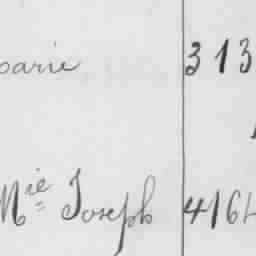 oarie 313
Mie Joseph 4164